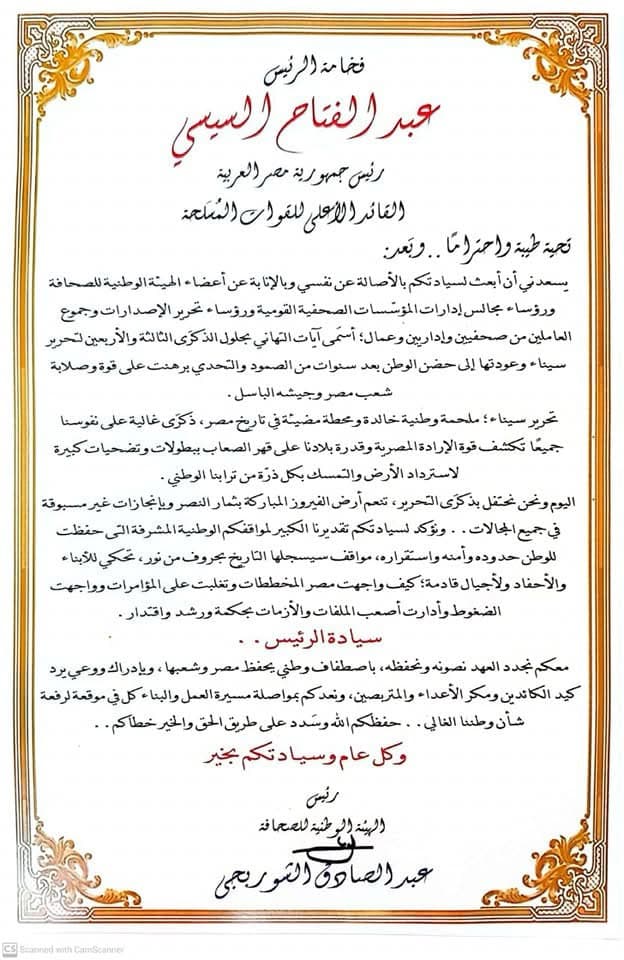 فخامة الرئيس
عبد الفتاح السيسي
رئيس جمهورية مصر العربية
القائد الأعلى للقوات المُسَلحة
تحية طيبة واحترامًا .. وبَعد:
يسعدني أن أبعث لسيادتكم بالأصالة عن نفسي وبالإنابة عن أعضاء الهيئة الوطنية للصحافة
ورؤساء مجالس إدارات المؤسّسات الصحفية القومية ورؤساء تحرير الإصدارات وجموع
العاملين من صحفيين وإداريين وعمال؛ أسمَى آيات التهاني بحلول الذكرَى الثالثة والأربعين لتحرير
سيناء وعودتها إلى حضن الوطن بعد سنوات من الصمود والتحدي برهنت على قوة وصلابة
شعب مصر وجيشه الباسل .
تحرير سيناء؛ ملحمة وطنية خالدة ومحطة مضيئة في تاريخ مصر، ذكرَى غالية على نفوسنا
جميعًا تكشف قوة الإرادة المصرية وقدرة بلادنا على قهر الصعاب ببطولات وتضحيات كبيرة
لاسترداد الأرض والتمسك بكل ذرّة من ترابنا الوطني .
اليوم ونحن نحتفل بذكرَى التحرير، تنعم أرض الفيروز المباركة بثمار النصر وبإنجازات غير مسبوقة
في جميع المجالات .. ونؤكد لسيادتكم تقديرنا الكبير لمواقفكم الوطنية المشرفة التى حفظت
للوطن حدوده وأمنه واستقراره، مواقف سيسجلها التاريخ بحروف من نور، تحكي للأبناء
والأحفاد ولأجيال قادمة؛ كيف واجهت مصر المخططات وتغلبت على المؤامرات وواجهت
الضغوط وأدارت أصعب الملفات والأزمات بحكمة ورشد واقتدار .
سيادة الرئيس ..
معكم نجدد العهد نصونه ونحفظه، باصطفاف وطني يحفظ مصر وشعبها، وبإدراك ووعي يرد
كيد الكائدين ومكر الأعداء والمتربصين، ونعدكم بمواصلة مسيرة العمل والبناء كل في موقعه لرفعة
شأن وطننا الغالي .. حفظكم الله وسَدد على طريق الحق والخير خطاكم ..
وكل عام وسيادتكم بخير
رئيس
الهيئة الوطنية للصحافة
عبد الصادق الشوربجى
CS Scanned with CamScanner